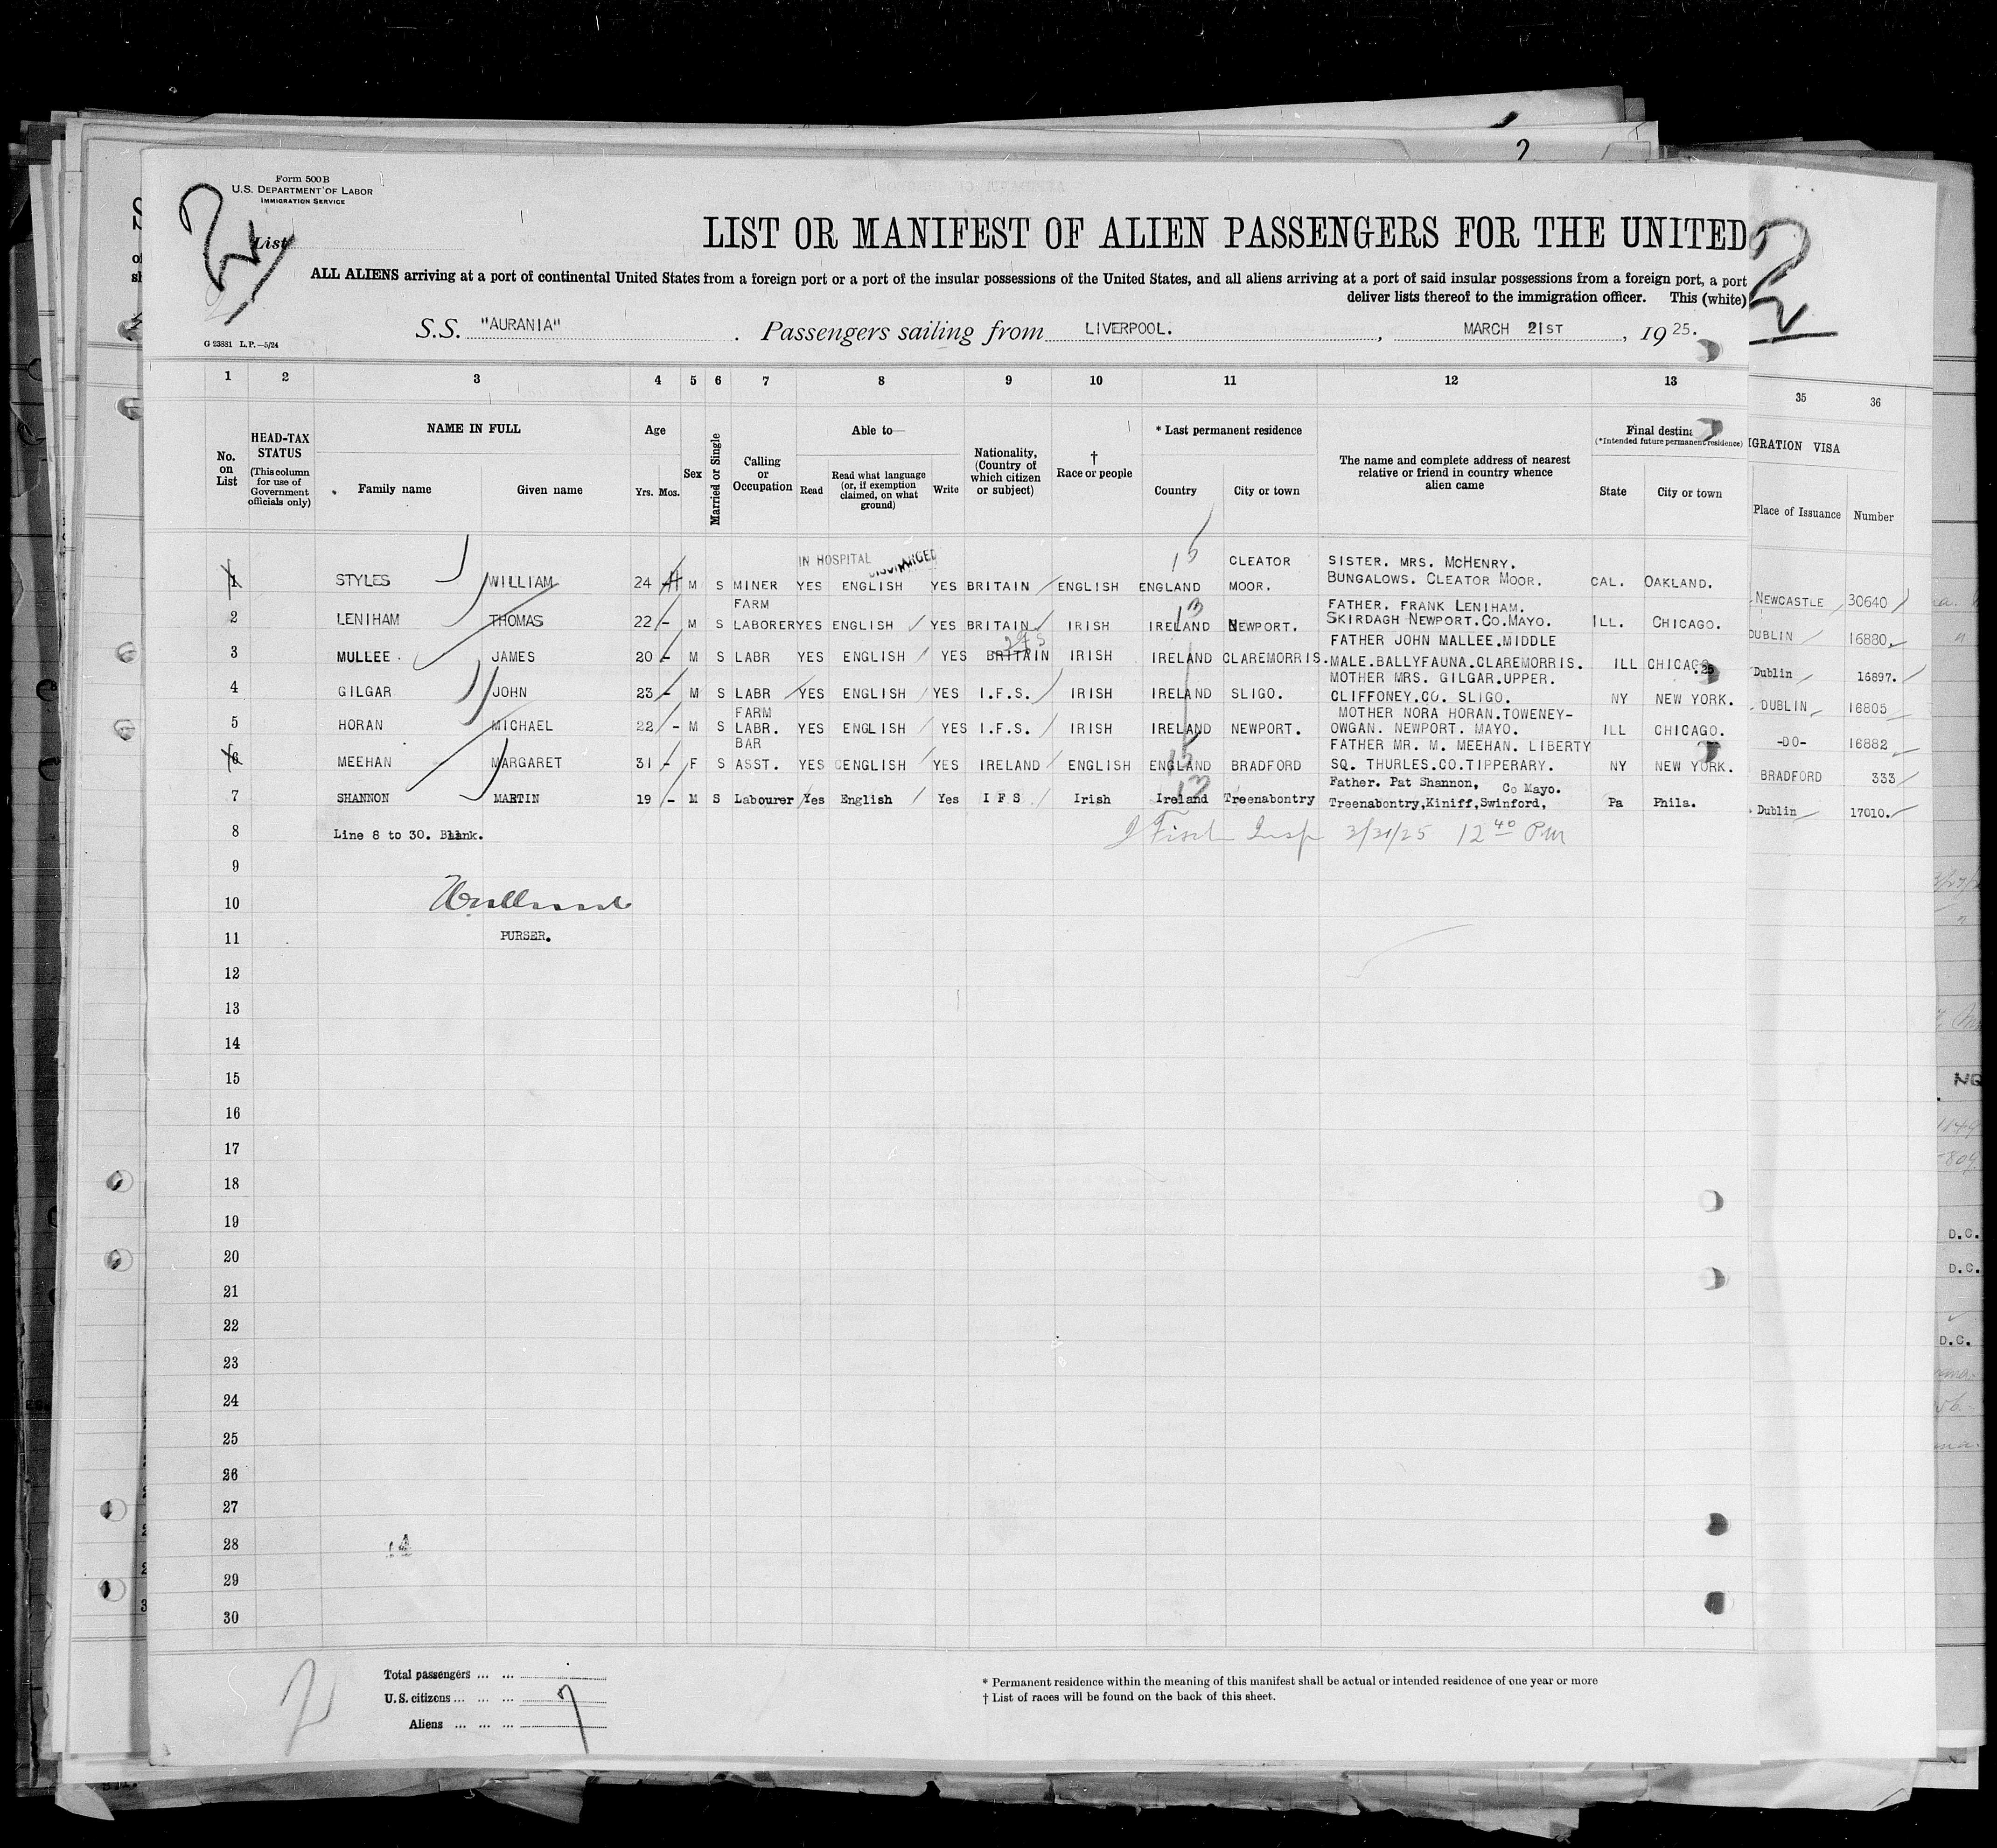 Form 500 B
U.S. DEPARTMENT OF LABOR
IMMIGRATION SERVICE
2
List
2
LIST OR MANIFEST OF ALIEN PASSENGERS FOR THE UNITED
2
ALL ALIENS arriving at a port of continental United States from a foreign port or a port of the insular possessions of the United States, and all aliens arriving at a port of said insular possessions from a foreign port, a port
deliver lists thereof to the immigration officer. This (white)
S.S. "AURANIA" . Passengers sailing from LIVERPOOL. , MARCH 21ST , 1925.
G 23881 L.P.—5/24
1 2 3 4 5 6 7 8 9 10 11 12 13 35 36
No. on List
HEAD-TAX STATUS (This column for use of Government officials only)
NAME IN FULL
Family name Given name
Age
Yrs. Mos.
Sex
Married or Single
Calling or Occupation
Able to—
Read
Read what language (or, if exemption claimed, on what ground)
Write
Nationality, (Country of which citizen or subject)
† Race or people
* Last permanent residence
Country City or town
The name and complete address of nearest relative or friend in country whence alien came
Final destina
(*Intended future permanent residence)
State City or town
IGRATION VISA
Place of Issuance Number
IN HOSPITAL DISCHARGED 15 CLEATOR SISTER. MRS. MCHENRY.
1 STYLES WILLIAM 24 H M S MINER YES ENGLISH YES BRITAIN ENGLISH ENGLAND MOOR. BUNGALOWS. CLEATOR MOOR. CAL. OAKLAND. NEWCASTLE 30640
FARM 13 FATHER. FRANK LENIHAM.
2 LENIHAM THOMAS 22 - M S LABORER YES ENGLISH YES BRITAIN IRISH IRELAND NEWPORT. SKIRDAGH NEWPORT.CO.MAYO. ILL. CHICAGO. DUBLIN 16880
FATHER JOHN MALLEE.MIDDLE
3 MULLEE. JAMES 20 - M S LABR YES ENGLISH YES BRITAIN IRISH IRELAND CLAREMORRIS. MALE.BALLYFAUNA.CLAREMORRIS. ILL CHICAGO. Dublin 16897.
MOTHER MRS. GILGAR.UPPER.
4 GILGAR JOHN 23 - M S LABR YES ENGLISH YES I.F.S. IRISH IRELAND SLIGO. CLIFFONEY.CO. SLIGO. NY NEW YORK. DUBLIN 16805
FARM MOTHER NORA HORAN.TOWENEY-
5 HORAN MICHAEL 22 - M S LABR. YES ENGLISH YES I.F.S. IRISH IRELAND NEWPORT. OWGAN. NEWPORT. MAYO. ILL CHICAGO. -DO- 16882
BAR 15 FATHER MR. M. MEEHAN. LIBERTY
6 MEEHAN MARGARET 31 - F S ASST. YES ENGLISH YES IRELAND ENGLISH ENGLAND BRADFORD SQ. THURLES.CO.TIPPERARY. NY NEW YORK. BRADFORD 333
13 Father. Pat Shannon, Co Mayo.
7 SHANNON MARTIN 19 - M S Labourer Yes English Yes I F S Irish Ireland Treenabontry Treenabontry,Kiniff,Swinford, Pa Phila. Dublin 17010.
8 Line 8 to 30. Blank. J Fisch Insp 3/31/25 12 40 PM
9
10
11 PURSER.
12
13
14
15
16
17
18
19
20
21
22
23
24
25
26
27
28
29
30
NQ
D.C.
D.C.
D.C.
2
Total passengers ... ...
U.S. citizens ... ... ...
Aliens ... ... ...
7
* Permanent residence within the meaning of this manifest shall be actual or intended residence of one year or more
† List of races will be found on the back of this sheet.